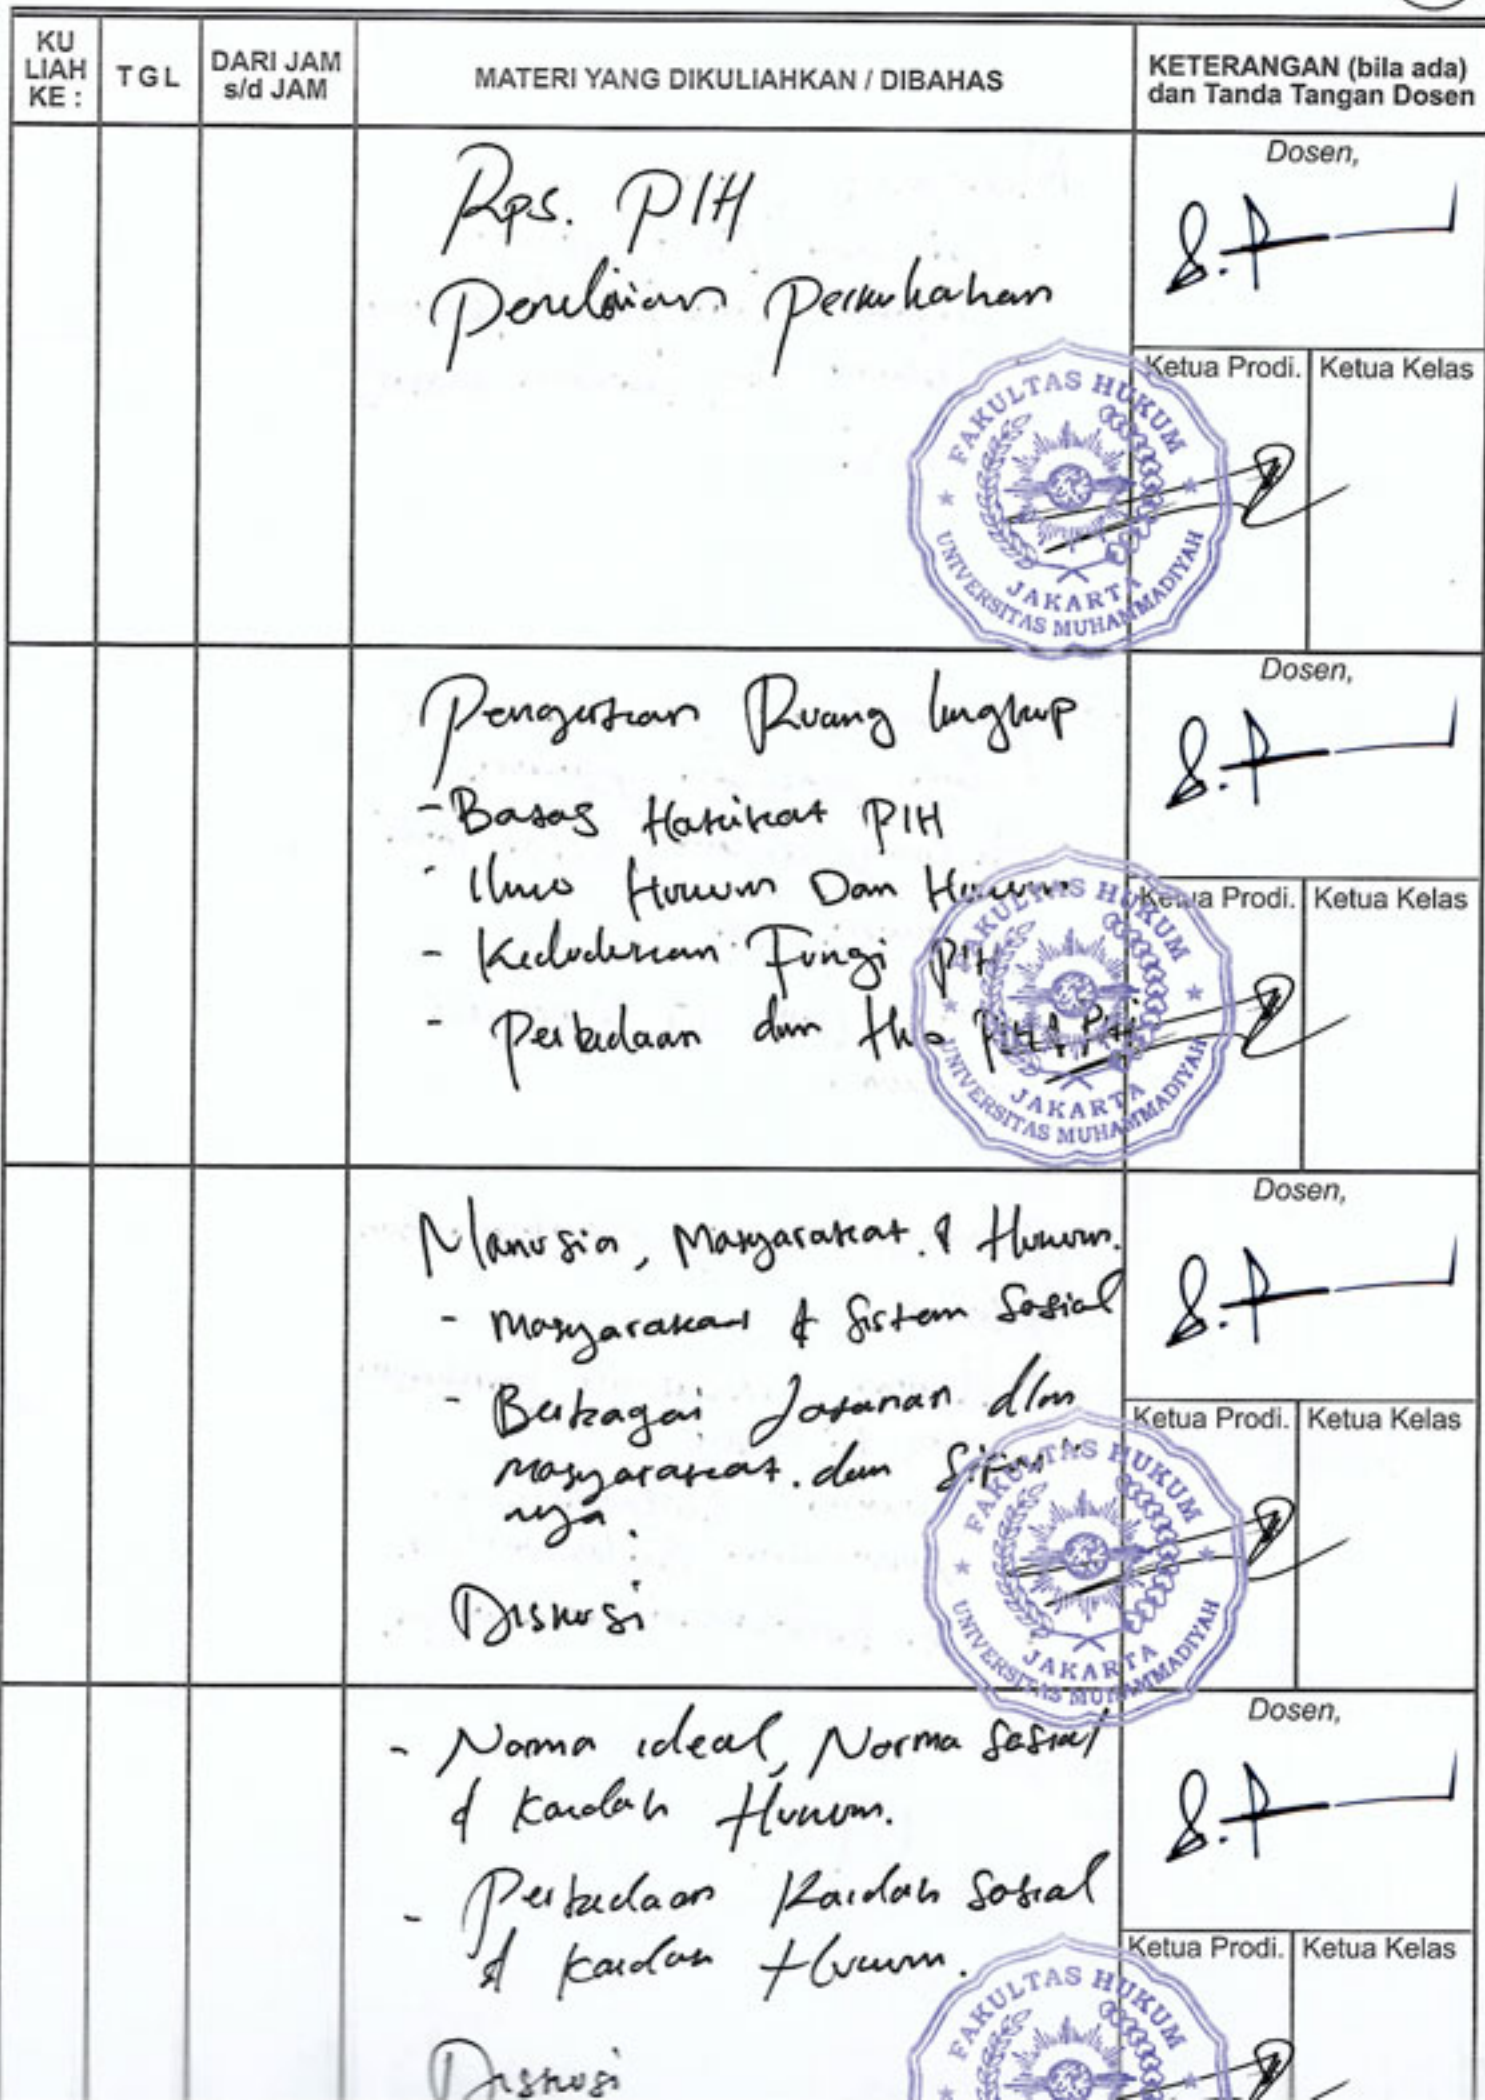 KU LIAH KE :
TGL
DARI JAM s/d JAM
MATERI YANG DIKULIAHKAN / DIBAHAS
KETERANGAN (bila ada) dan Tanda Tangan Dosen
Rps. PIH
Penilaian Perkuliahan
Dosen,
Ketua Prodi.
Ketua Kelas
FAKULTAS HUKUM
UNIVERSITAS MUHAMMADIYAH
JAKARTA
Pengertian Ruang lingkup
- Batas Hakikat PIH
- Ilmu Hukum Dan Hukum
- Kedudukan Fungi PIH
- Perbedaan dan
Dosen,
Ketua Prodi.
Ketua Kelas
FAKULTAS HUKUM
UNIVERSITAS MUHAMMADIYAH
JAKARTA
Manusia, Masyarakat & Hukum.
- Masyarakat & Sistem Sosial
- Berbagai Tatanan dlm
masyarakat dan
nya.
Diskusi
Dosen,
Ketua Prodi.
Ketua Kelas
FAKULTAS HUKUM
UNIVERSITAS MUHAMMADIYAH
JAKARTA
- Norma ideal, Norma Sosial
& Kaidah Hukum.
- Perbedaan Kaidah Sosial
& Kaidah Hukum.
Diskusi
Dosen,
Ketua Prodi.
Ketua Kelas
FAKULTAS HUKUM